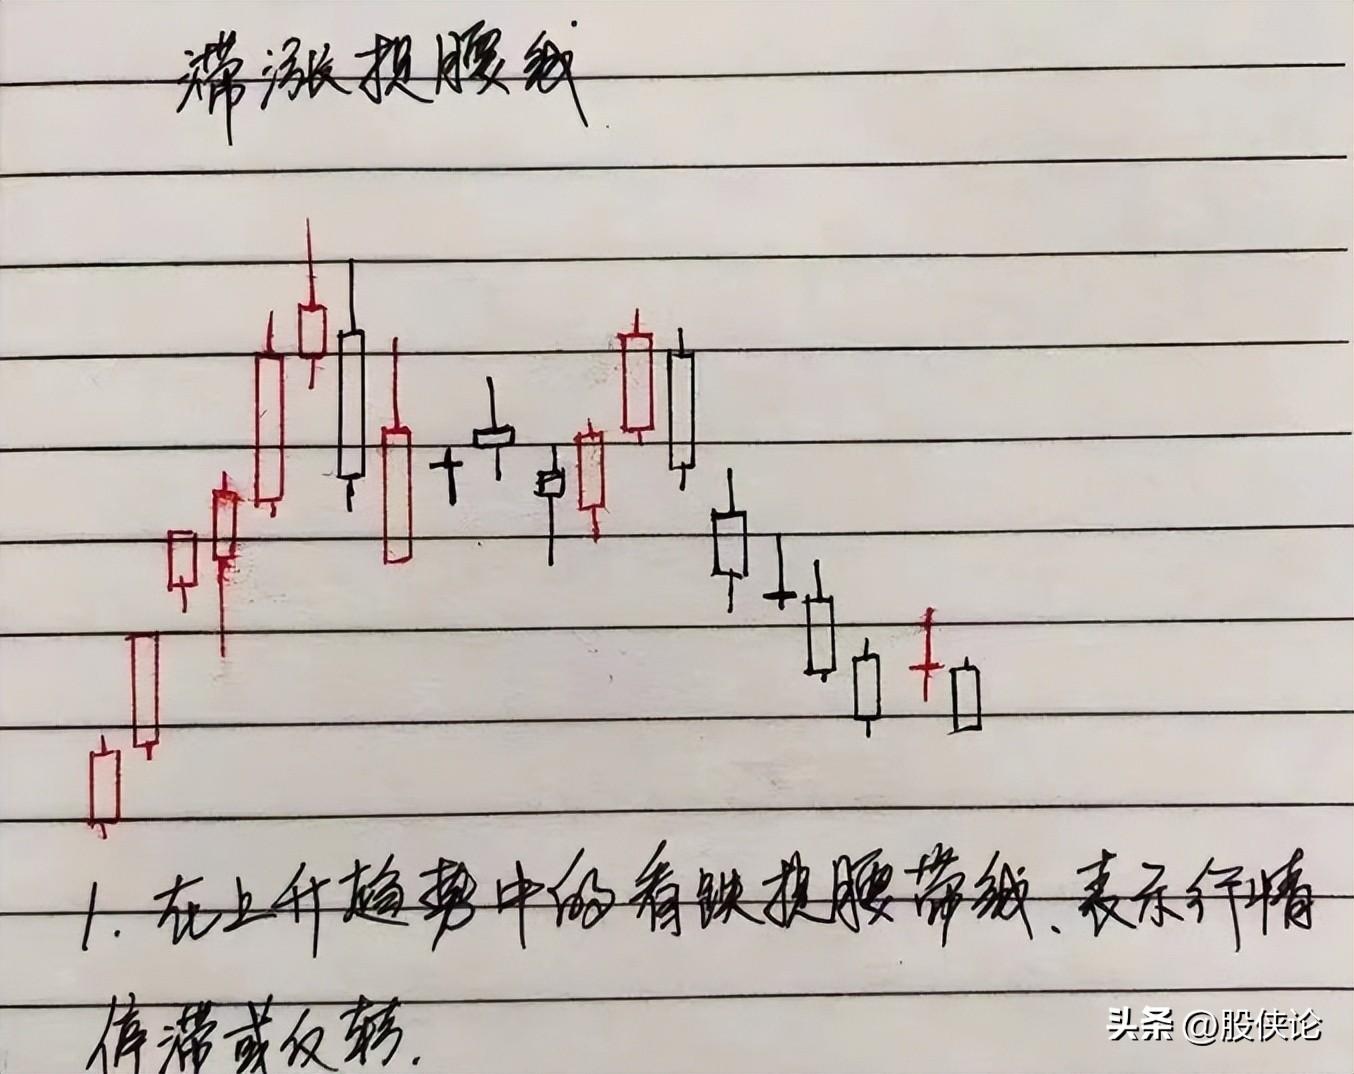 滞涨捉腰线
1. 在上升趋势中的看跌捉腰带线、表示行情
停滞或反转.
头条 @股侠论